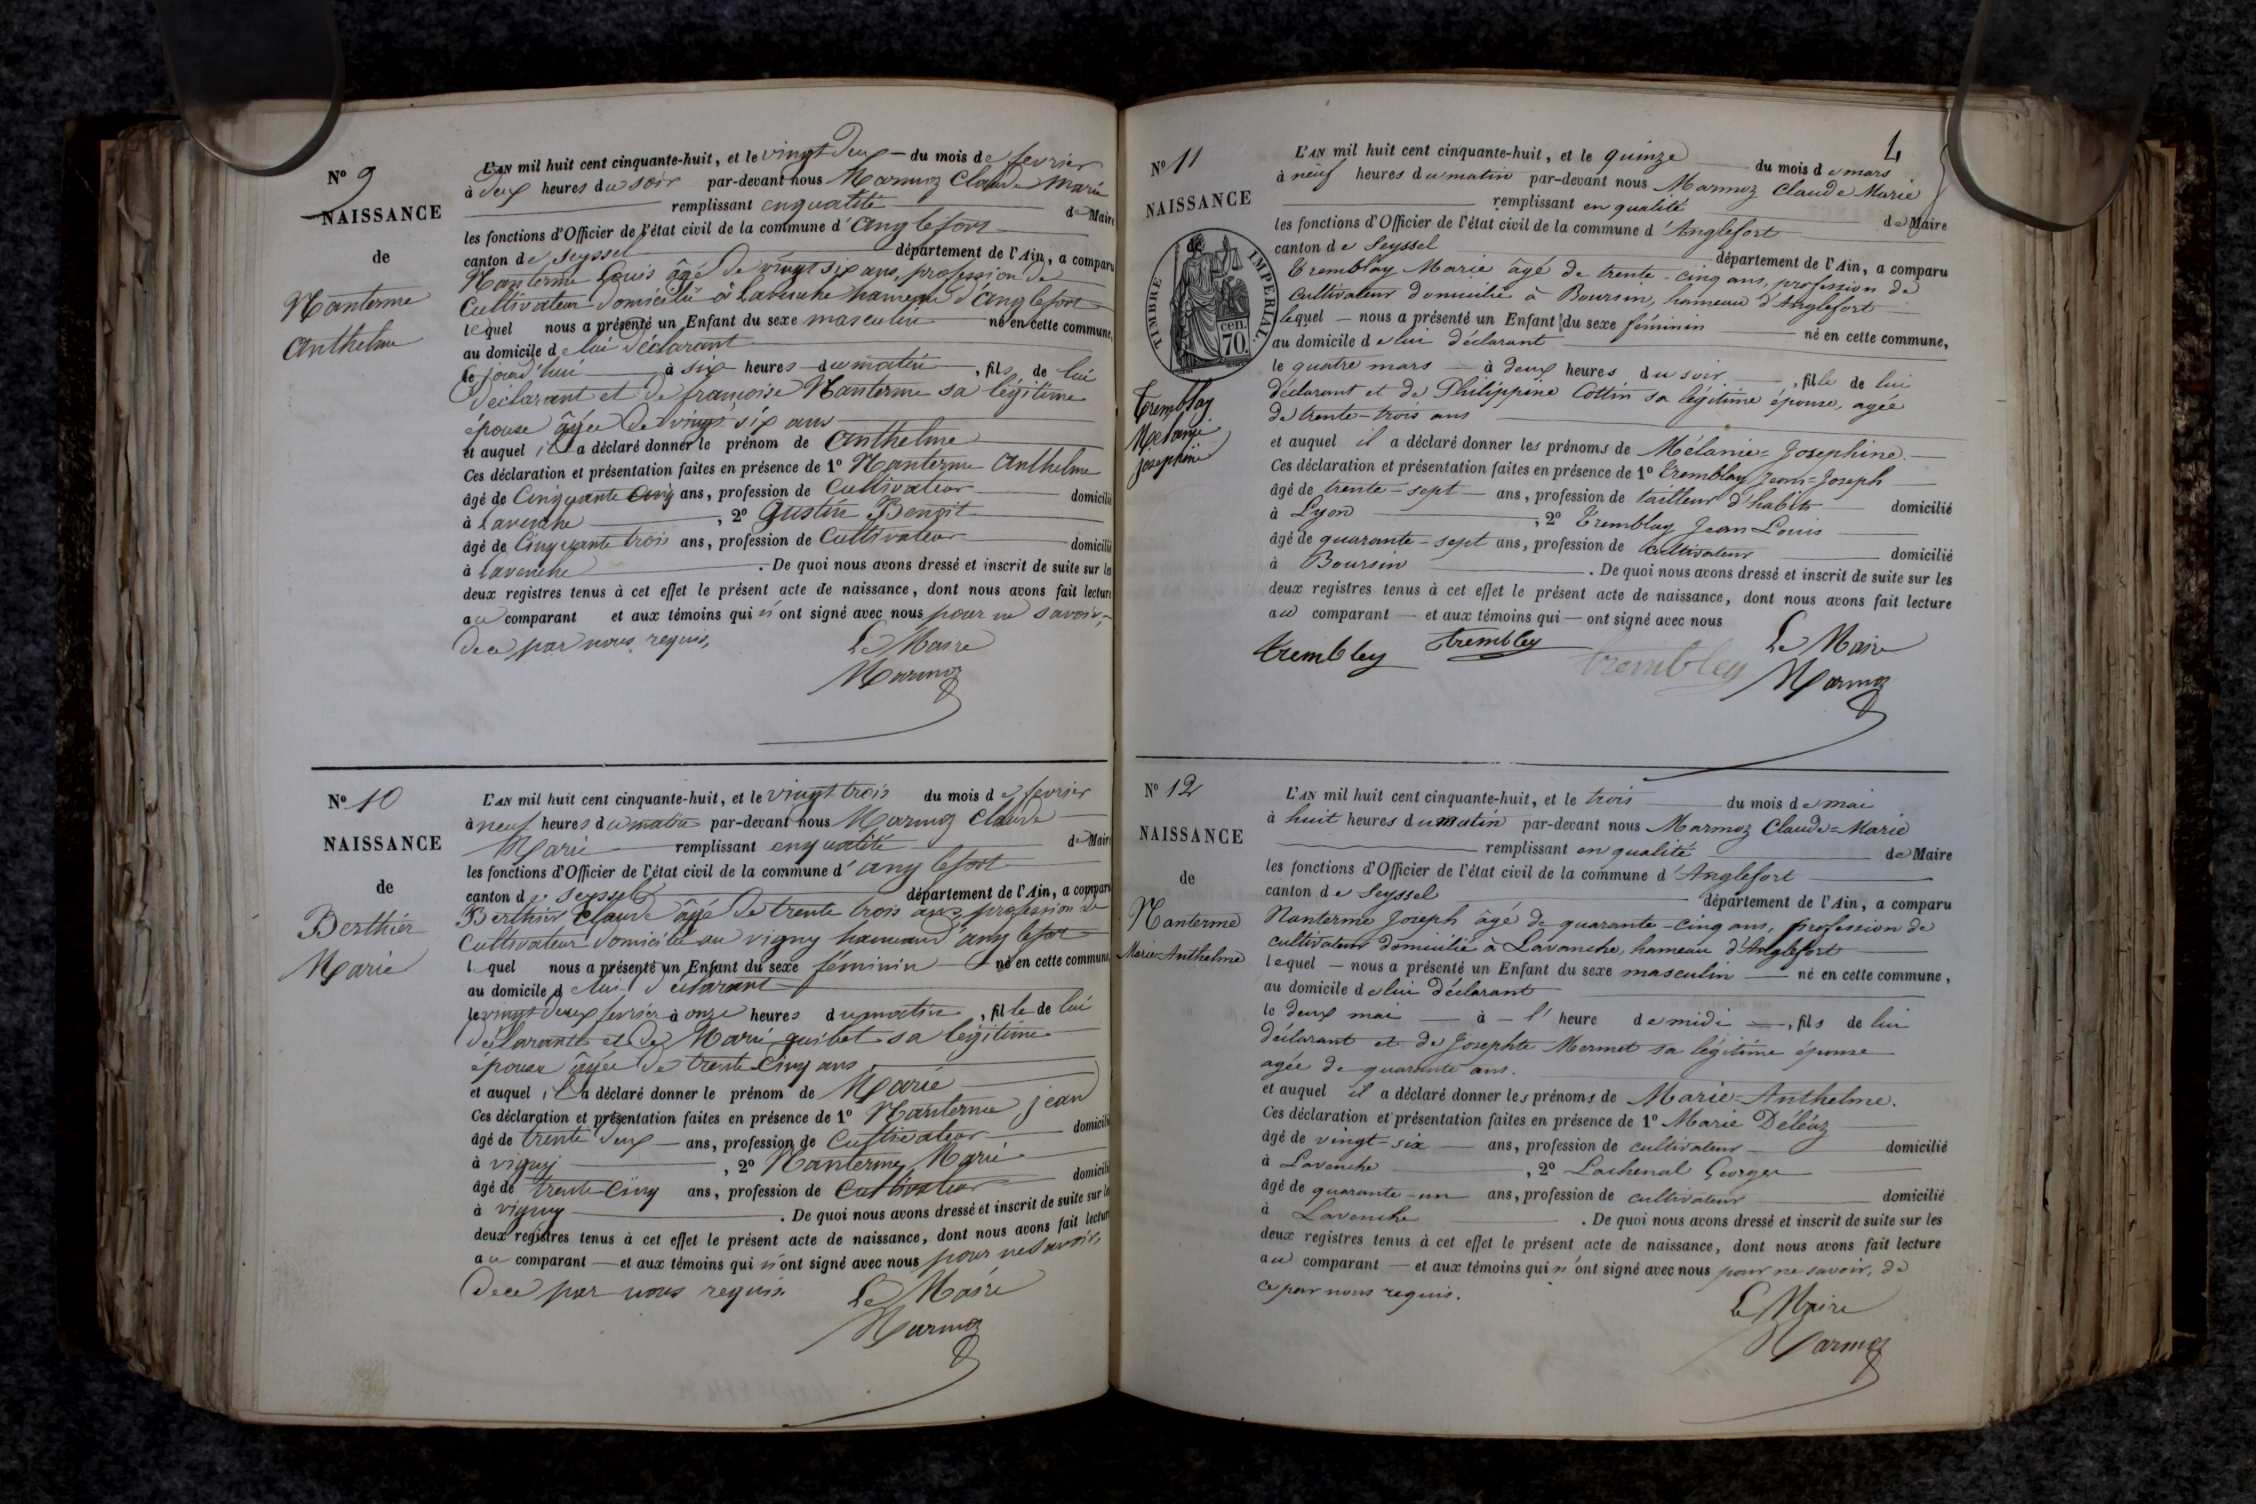 N° 9
NAISSANCE
de
Nanterme
Anthelme
L'AN mil huit cent cinquante-huit, et le vingt deux du mois de fevrier
à deux heures du soir par-devant nous Marmoz Claude Marie
remplissant en qualité de Maire
les fonctions d'Officier de l'état civil de la commune d'anglefort
canton de seyssel département de l'Ain, a comparu
Nanterme Louis âgé de vingt six ans, profession de
Cultivateur domicilié à Lavenche hameau d'anglefort
lequel nous a présenté un Enfant du sexe masculin né en cette commune,
au domicile de lui déclarant
le jourd'hui à six heures du matin, fils de lui
déclarant et de françoise Nanterme sa légitime
épouse âgée de vingt six ans
et auquel il a déclaré donner le prénom de Anthelme
Ces déclaration et présentation faites en présence de 1° Nanterme Anthelme
âgé de Cinquante Cinq ans, profession de Cultivateur domicilié
à Lavenche, 2° Gustin Benoit
âgé de Cinquante trois ans, profession de Cultivateur domicilié
à Lavenche. De quoi nous avons dressé et inscrit de suite sur les
deux registres tenus à cet effet le présent acte de naissance, dont nous avons fait lecture
au comparant et aux témoins qui n'ont signé avec nous pour ne savoir,
de ce par nous requis,
Le Maire
Marmoz
N° 10
NAISSANCE
de
Berthier
Marie
L'AN mil huit cent cinquante-huit, et le vingt trois du mois de fevrier
à neuf heures du matin par-devant nous Marmoz Claude
Marie remplissant en qualité de Maire
les fonctions d'Officier de l'état civil de la commune d'anglefort
canton de seyssel département de l'Ain, a comparu
Berthier Claude âgé de trente trois ans profession de
Cultivateur domicilié au vigny hameau d'anglefort
lequel nous a présenté un Enfant du sexe féminin né en cette commune
au domicile de lui déclarant
le vingt deux fevrier à onze heures du matin, fille de lui
déclarant et de Marie guibet sa légitime
épouse âgée de trente Cinq ans
et auquel il a déclaré donner le prénom de Marie
Ces déclaration et présentation faites en présence de 1° Nanterme jean
âgé de trente deux ans, profession de Cultivateur domicilié
à vigny, 2° Nanterme Marie
âgé de trente Cinq ans, profession de Cultivateur domicilié
à vigny. De quoi nous avons dressé et inscrit de suite sur les
deux registres tenus à cet effet le présent acte de naissance, dont nous avons fait lecture
au comparant et aux témoins qui n'ont signé avec nous pour ne savoir,
de ce par nous requis.
Le Maire
Marmoz
4
N° 11
NAISSANCE
de
TIMBRE IMPÉRIAL.
70 cen.
Tremblay
Mélanie
josephine
L'AN mil huit cent cinquante-huit, et le quinze du mois de mars
à neuf heures du matin par-devant nous Marmoz Claude Marie
remplissant en qualité de Maire
les fonctions d'Officier de l'état civil de la commune d'Anglefort
canton de Seyssel département de l'Ain, a comparu
Tremblay Marie âgé de trente-cinq ans, profession de
cultivateur domicilié à Boursin, hameau d'Anglefort
lequel nous a présenté un Enfant du sexe féminin né en cette commune,
au domicile de lui déclarant
le quatre mars à deux heures du soir, fille de lui
déclarant et de Philippine Cottin sa légitime épouse, agée
de trente-trois ans
et auquel il a déclaré donner les prénoms de Mélanie=Josephine.
Ces déclaration et présentation faites en présence de 1° Tremblay Jean=Joseph
âgé de trente-sept ans, profession de tailleur d'habits domicilié
à Lyon, 2° Tremblay Jean Louis
âgé de quarante-sept ans, profession de cultivateur domicilié
à Boursin. De quoi nous avons dressé et inscrit de suite sur les
deux registres tenus à cet effet le présent acte de naissance, dont nous avons fait lecture
au comparant et aux témoins qui ont signé avec nous
trembley trembley trembley
Le Maire
Marmoz
N° 12
NAISSANCE
de
Nanterme
Marie-Anthelme
L'AN mil huit cent cinquante-huit, et le trois du mois de mai
à huit heures du matin par-devant nous Marmoz Claude=Marie
remplissant en qualité de Maire
les fonctions d'Officier de l'état civil de la commune d'Anglefort
canton de Seyssel département de l'Ain, a comparu
Nanterme Joseph, âgé de quarante-cinq ans, profession de
cultivateur domicilié à Lavanche, hameau d'Anglefort
lequel nous a présenté un Enfant du sexe masculin né en cette commune,
au domicile de lui déclarant
le deux mai à l'heure de midi, fils de lui
déclarant et de Josephte Mermet sa légitime épouse
agée de quarante ans.
et auquel il a déclaré donner les prénoms de Marie=Anthelme.
Ces déclaration et présentation faites en présence de 1° Marie Déléaz
âgé de vingt=six ans, profession de cultivateur domicilié
à Lavenche, 2° Lachenal Georges
âgé de quarante-un ans, profession de cultivateur domicilié
à Lavenche. De quoi nous avons dressé et inscrit de suite sur les
deux registres tenus à cet effet le présent acte de naissance, dont nous avons fait lecture
au comparant et aux témoins qui n'ont signé avec nous pour ne savoir, de
ce par nous requis.
Le Maire
Marmoz